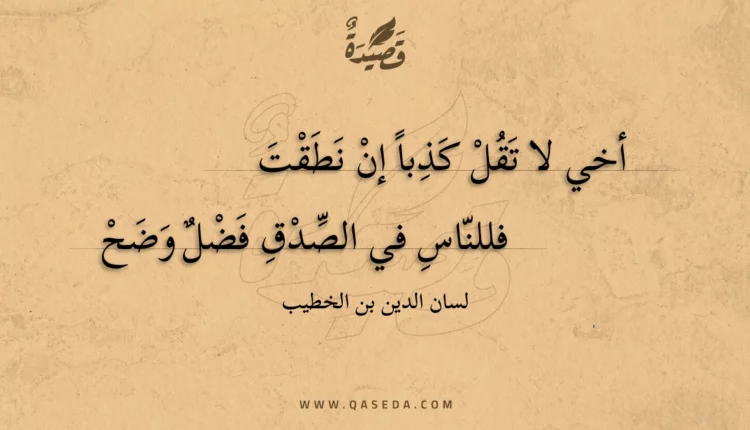 قَصِيْدَةٌ
أخي لا تَقُلْ كَذِباً إنْ نَطَقْتَ
فللنّاسِ في الصِّدْقِ فَضْلٌ وَضَحْ
لسان الدين بن الخطيب
WWW.QASEDA.COM